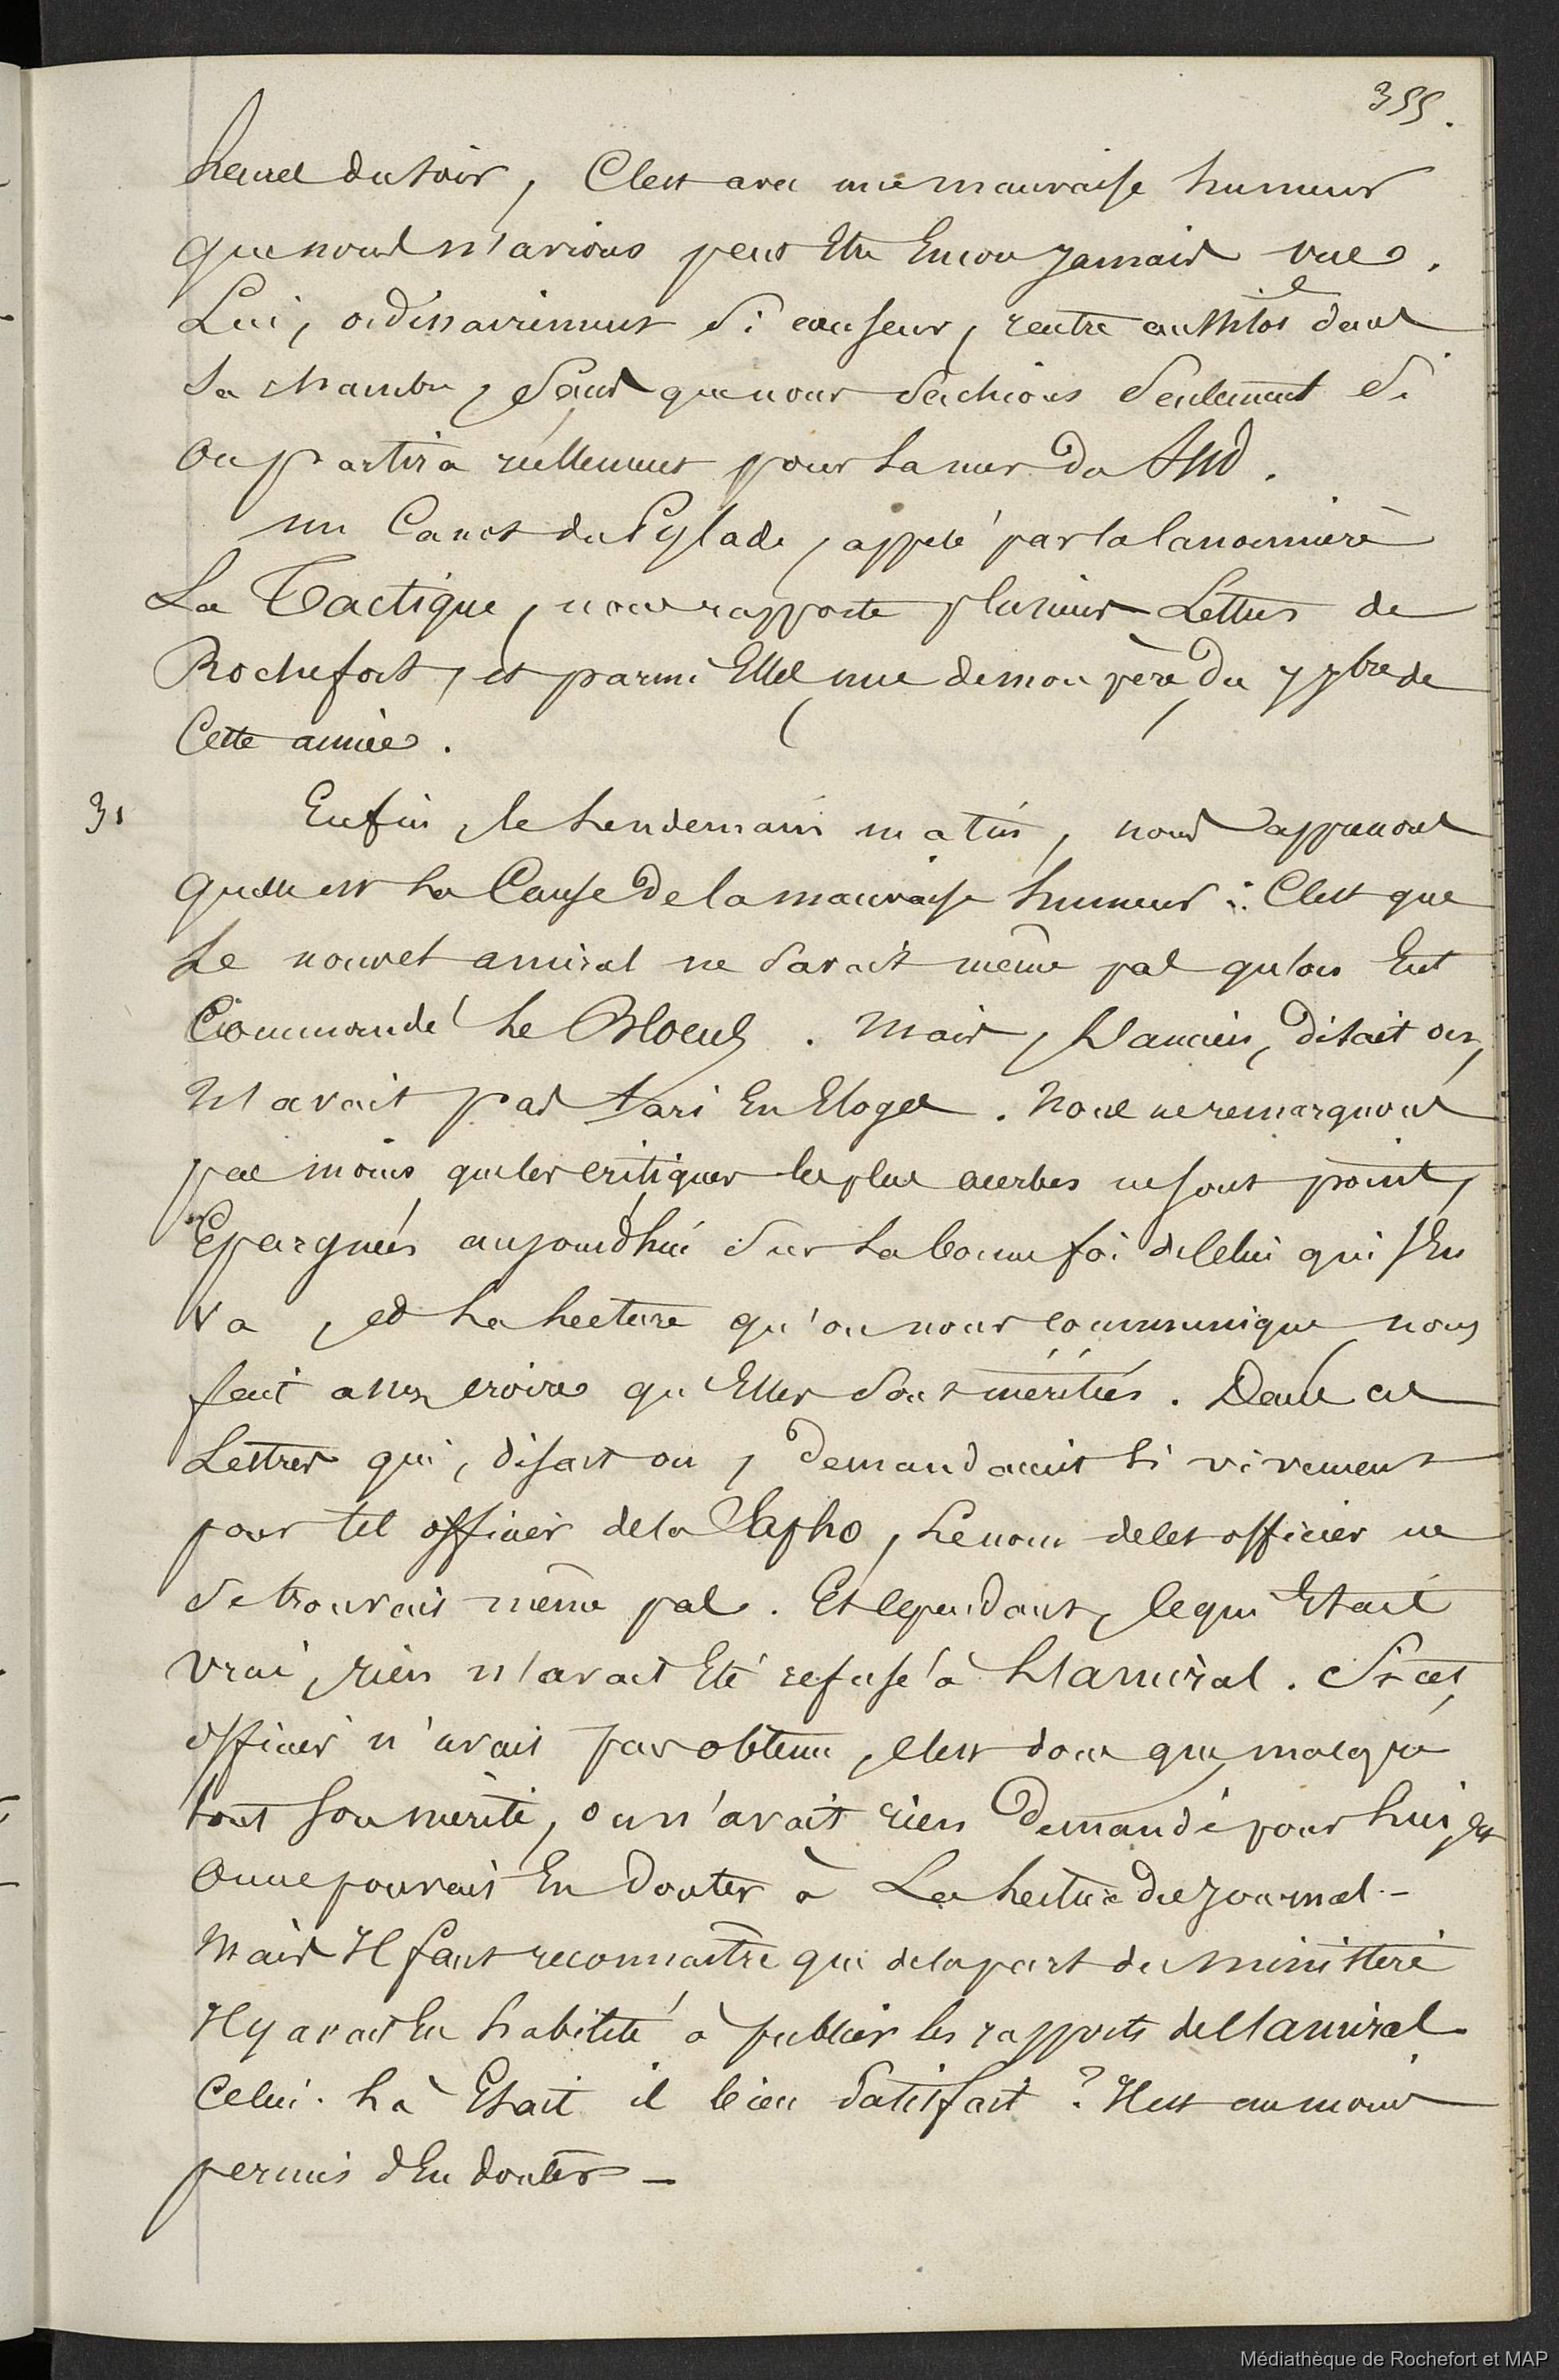 355.
heures du soir, C'est avec une mauvaise humeur
que nous n'avions peut Etre Encore jamais vue.
Lui, ordinairement si causeur, rentre aussitot dans
sa chambre, sans que nous sachions seulement si
on partira réellement pour la mer du Sud.
un Canot du Pylade, appelé par la Canonnière
La Tactique, nous rapporte plusieurs Lettres de
Rochefort, et parmi Elles une de mon père, du 7 7bre de
Cette année.
31 Enfin, le lendemain matin, nous apprenons
quelle est la Cause de la mauvaise humeur : C'est que
Le nouvel amiral ne savait même pas qu'on Eut
Commandé le Blocus. Mais, L'ancien, disait on,
N'avait pas tari En Eloges. Nous ne remarquons
pas moins que les critiques les plus acerbes ne sont point,
Epargnées aujourd'hui sur la bonne foi de Celui qui s'En
va, et La Lecture qu'on nous communique nous
fait assez croire qu'Elles sont méritées. Dans ces
Lettres qui, disait on, demandaient si vivement
pour tel officier de la Sapho, le nom de cet officier ne
se trouvait même pas. Et cependant, ce qui Etait
vrai, rien n'avait Eté refusé à L'amiral. Si cet
officier n'avait pas obtenu, c'est donc que, malgré
tout son mérite, on n'avait rien demandé pour lui, et
On ne pouvait En douter à La Lecture du journal.-
Mais Il faut reconnaitre que de la part du ministère
Il y avait Eu habileté à publier les rapports de l'amiral
Celui-là Etait il bien satisfait ? Il est au moins
permis d'En douter -
Médiathèque de Rochefort et MAP